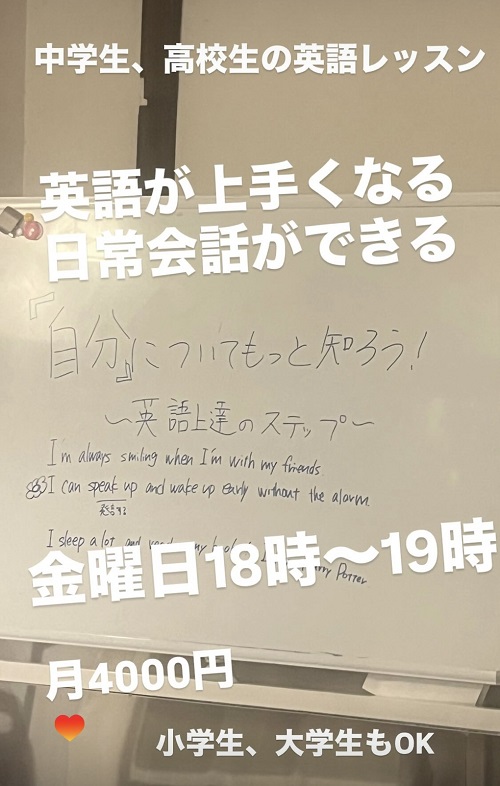 中学生、高校生の英語レッスン
英語が上手くなる
日常会話ができる
『自分』についてもっと知ろう!
〜英語上達のステップ〜
I'm always smiling when I'm with my friends.
I can speak up and wake up early without the alarm.
発言する
I sleep a lot and my
Potter
金曜日18時〜19時
月4000円
小学生、大学生もOK